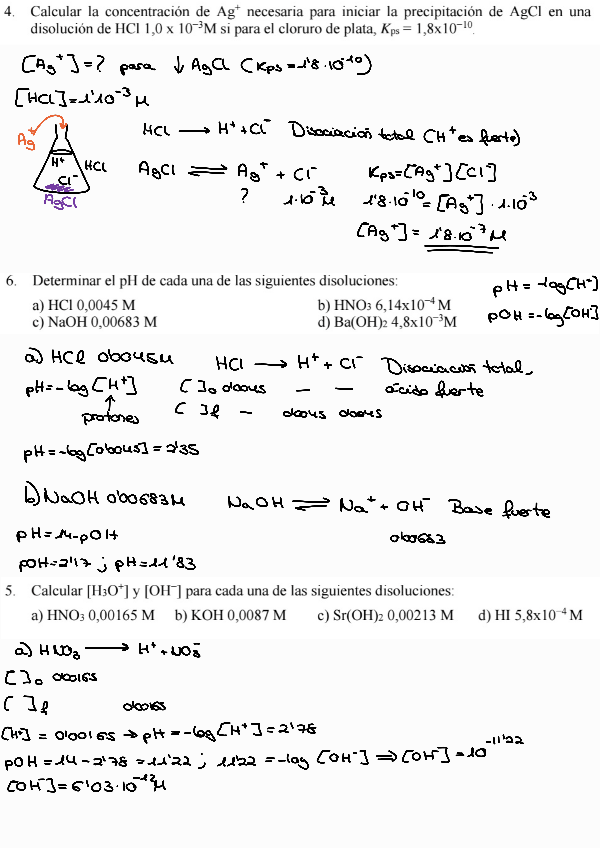 4. Calcular la concentración de Ag⁺ necesaria para iniciar la precipitación de AgCl en una
disolución de HCl 1,0 x 10⁻³M si para el cloruro de plata, Kps = 1,8x10⁻¹⁰.
[Ag⁺]=? para ↓ AgCl (Kps = 1'8·10⁻¹⁰)
[HCl]=1'10⁻³ M
HCl ⟶ H⁺+Cl⁻ Disociación total (H⁺ es fuerte)
Ag⁺
H⁺ HCl
Cl⁻
AgCl
AgCl ⇌ Ag⁺ + Cl⁻ Kps=[Ag⁺][Cl⁻]
? 1·10⁻³M 1'8·10⁻¹⁰=[Ag⁺]·1·10⁻³
[Ag⁺]= 1'8·10⁻⁷ M
6. Determinar el pH de cada una de las siguientes disoluciones:
pH = -log[H⁺]
a) HCl 0,0045 M b) HNO₃ 6,14x10⁻⁴ M
pOH = -log[OH⁻]
c) NaOH 0,00683 M d) Ba(OH)₂ 4,8x10⁻³M
a) HCl 0'0045M HCl ⟶ H⁺ + Cl⁻ Disociación total,
pH=-log[H⁺] [ ]₀ 0'0045 — — ácido fuerte
↑
protones [ ]f - 0'0045 0'0045
pH=-log[0'0045] = 2'35
b) NaOH 0'00683M NaOH ⇌ Na⁺ + OH⁻ Base fuerte
pH=14-pOH 0'00683
pOH=2'17 ; pH=11'83
5. Calcular [H₃O⁺] y [OH⁻] para cada una de las siguientes disoluciones:
a) HNO₃ 0,00165 M b) KOH 0,0087 M c) Sr(OH)₂ 0,00213 M d) HI 5,8x10⁻⁴ M
a) HNO₃ ⟶ H⁺ + NO₃⁻
[ ]₀ 0'00165
[ ]f 0'00165
[H⁺] = 0'00165 → pH = -log[H⁺] = 2'78
pOH = 14 - 2'78 = 11'22 ; 11'22 = -log [OH⁻] ⇒ [OH⁻] = 10⁻¹¹'²²
[OH⁻]=6'03·10⁻¹²M